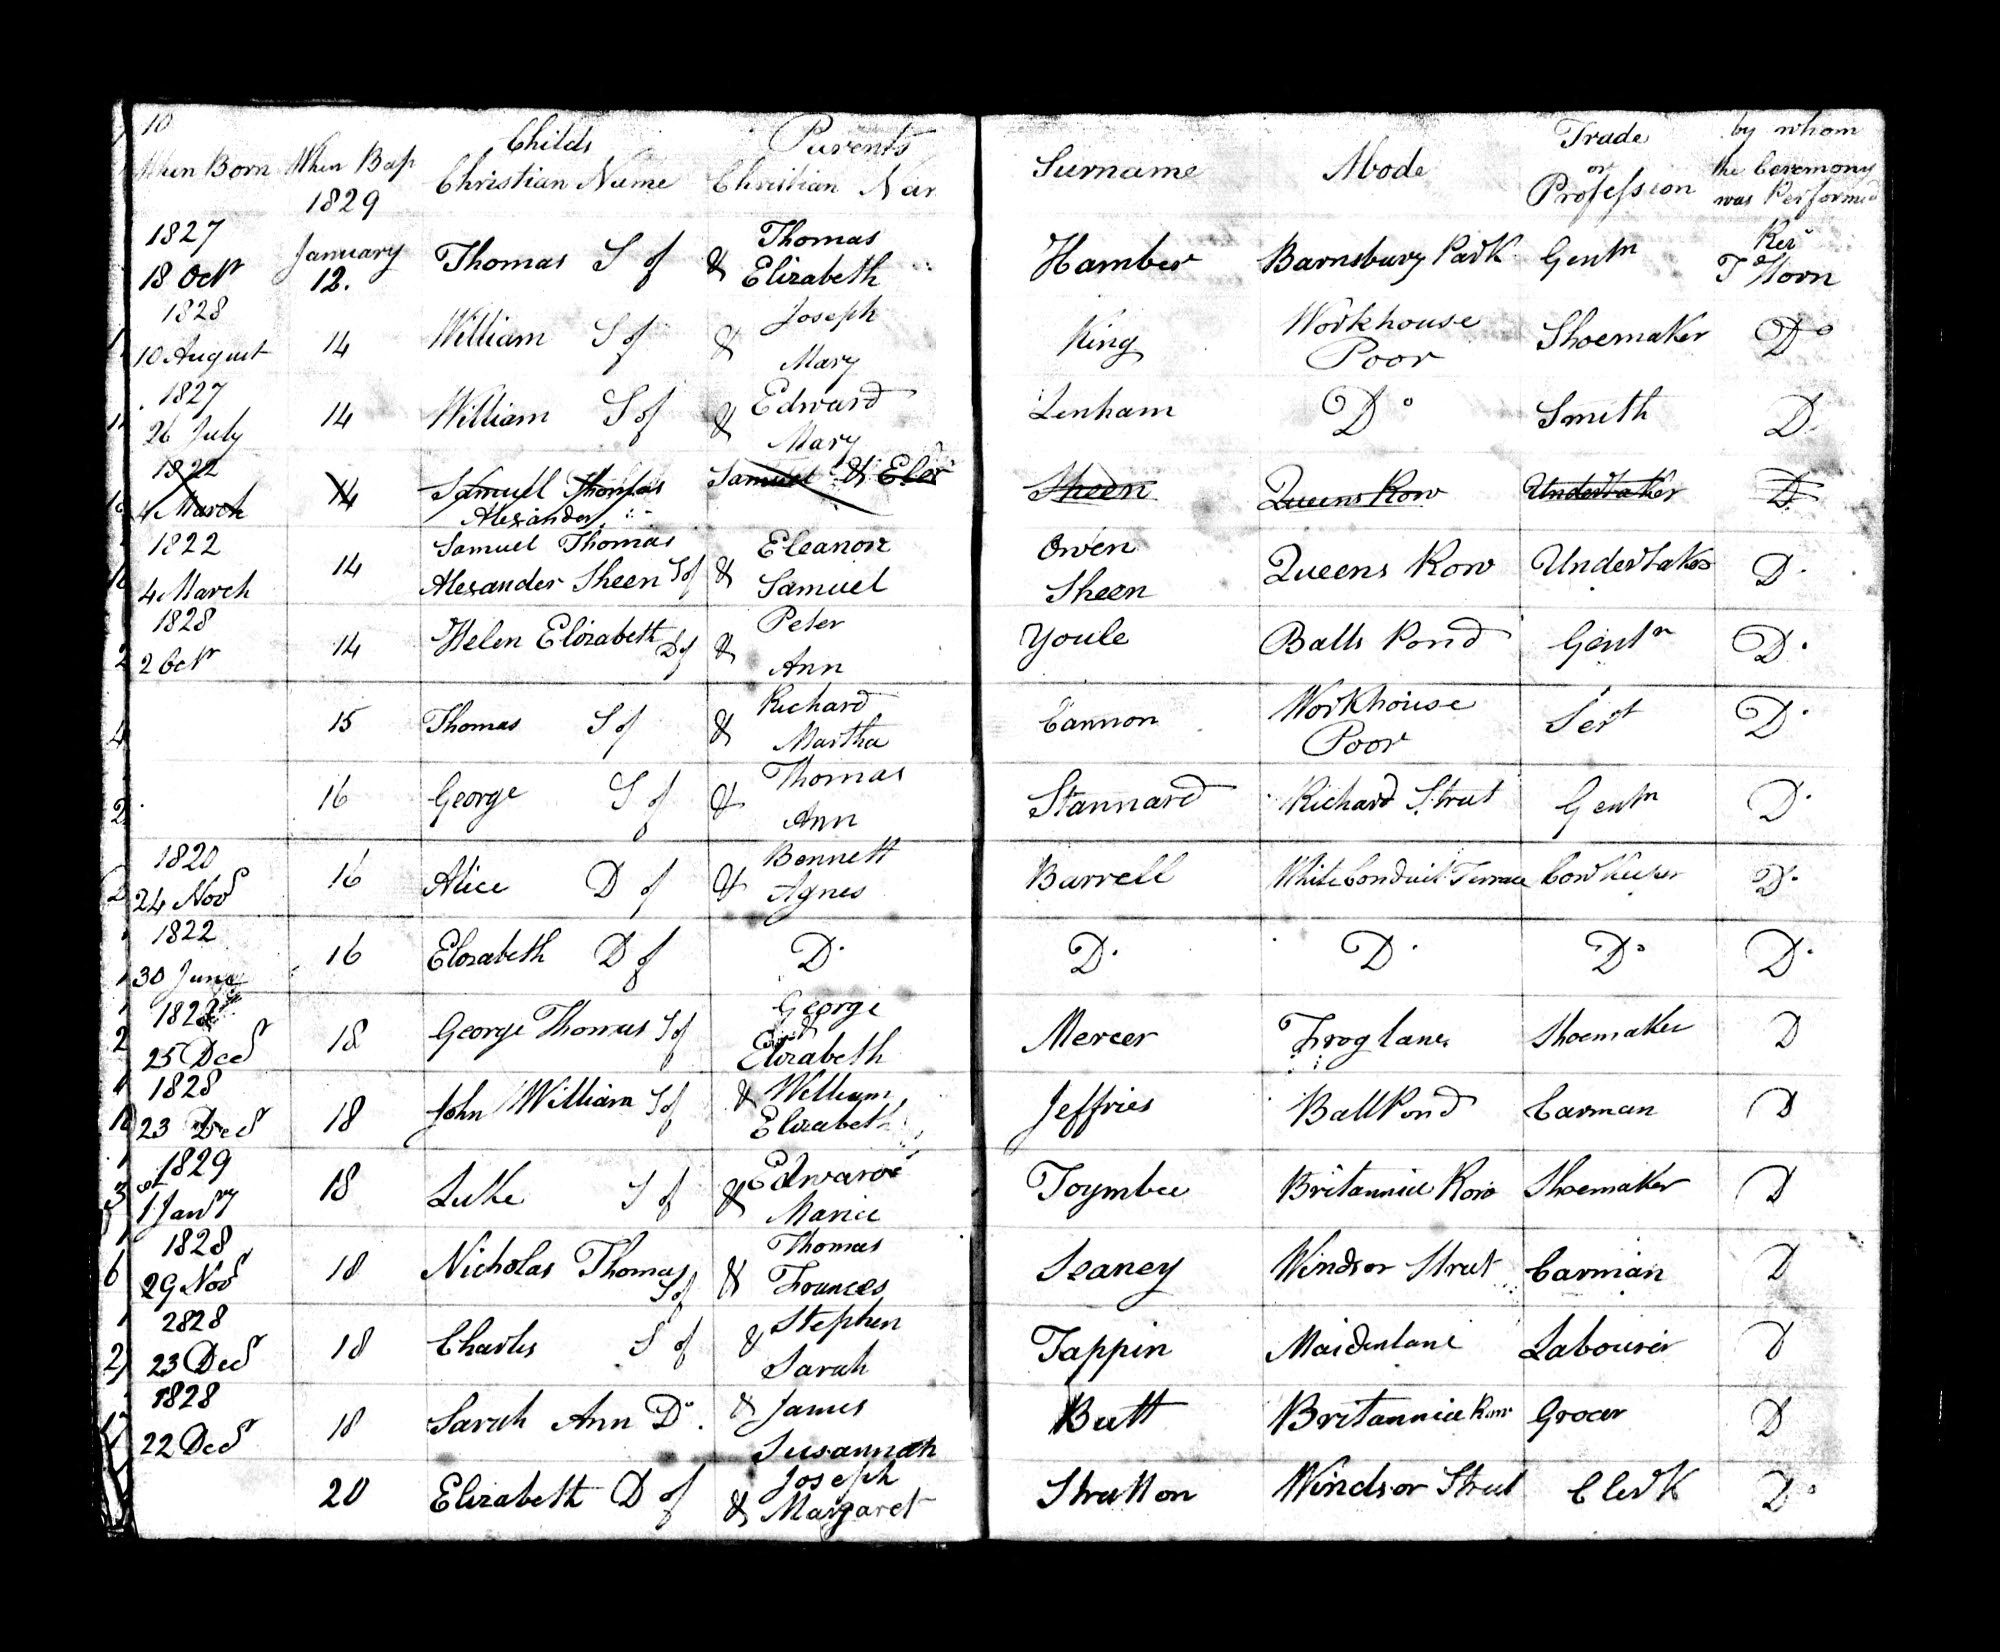 10
When Born When Bap Childs Christian Name Parents Christian Nam Surname Abode Trade or Profession by whom the Ceremony was Performed
1829
1827
18 Octr January 12. Thomas S of Thomas & Elizabeth Hamber Barnsbury Park Gentn Revd T Horn
1828
10 August 14 William S of Joseph & Mary King Workhouse Poor Shoemaker Do
1827
26 July 14 William S of Edward & Mary Lenham Do Smith D.
1822
4 March 14 Samuell Thomas Alexander Samuel & Eler Sheen Queens Row Undertaker D.
1822
4 March 14 Samuel Thomas Alexander Sheen S of Eleanor & Samuel Owen Sheen Queens Row Undertaker D.
1828
2 Octr 14 Helen Elizabeth D of Peter & Ann Youle Balls Pond Gentn D.
15 Thomas S of Richard & Martha Cannon Workhouse Poor Sert D.
16 George S of Thomas & Ann Stannard Richard Street Gentn D.
1820
24 Nov 16 Alice D of Bennett & Agnes Barrell White Conduit Terrace Cow Keeper D.
1822
30 June 16 Elizabeth D of D. D. D. Do D.
1828
25 Decr 18 George Thomas S of George & Elizabeth Mercer Frog lane Shoemaker D
1828
23 Decr 18 John William S of & William Elizabeth Jeffries Ball Pond Carman D
1829
1st Jany 18 Luke S of Edward & Maria Toymbee Britannia Row Shoemaker D
1828
29 Nov 18 Nicholas Thomas S of Thomas & Frances Seaney Windsor Street Carman D
2828
23 Decr 18 Charles S of & Stephen Sarah Tappin Maidenlane Labourer D
1828
22 Decr 18 Sarah Ann D. & James Susannah Butt Britannia Row Grocer D
20 Elizabeth D of Joseph & Margaret Stratton Windsor Street Clerk D.